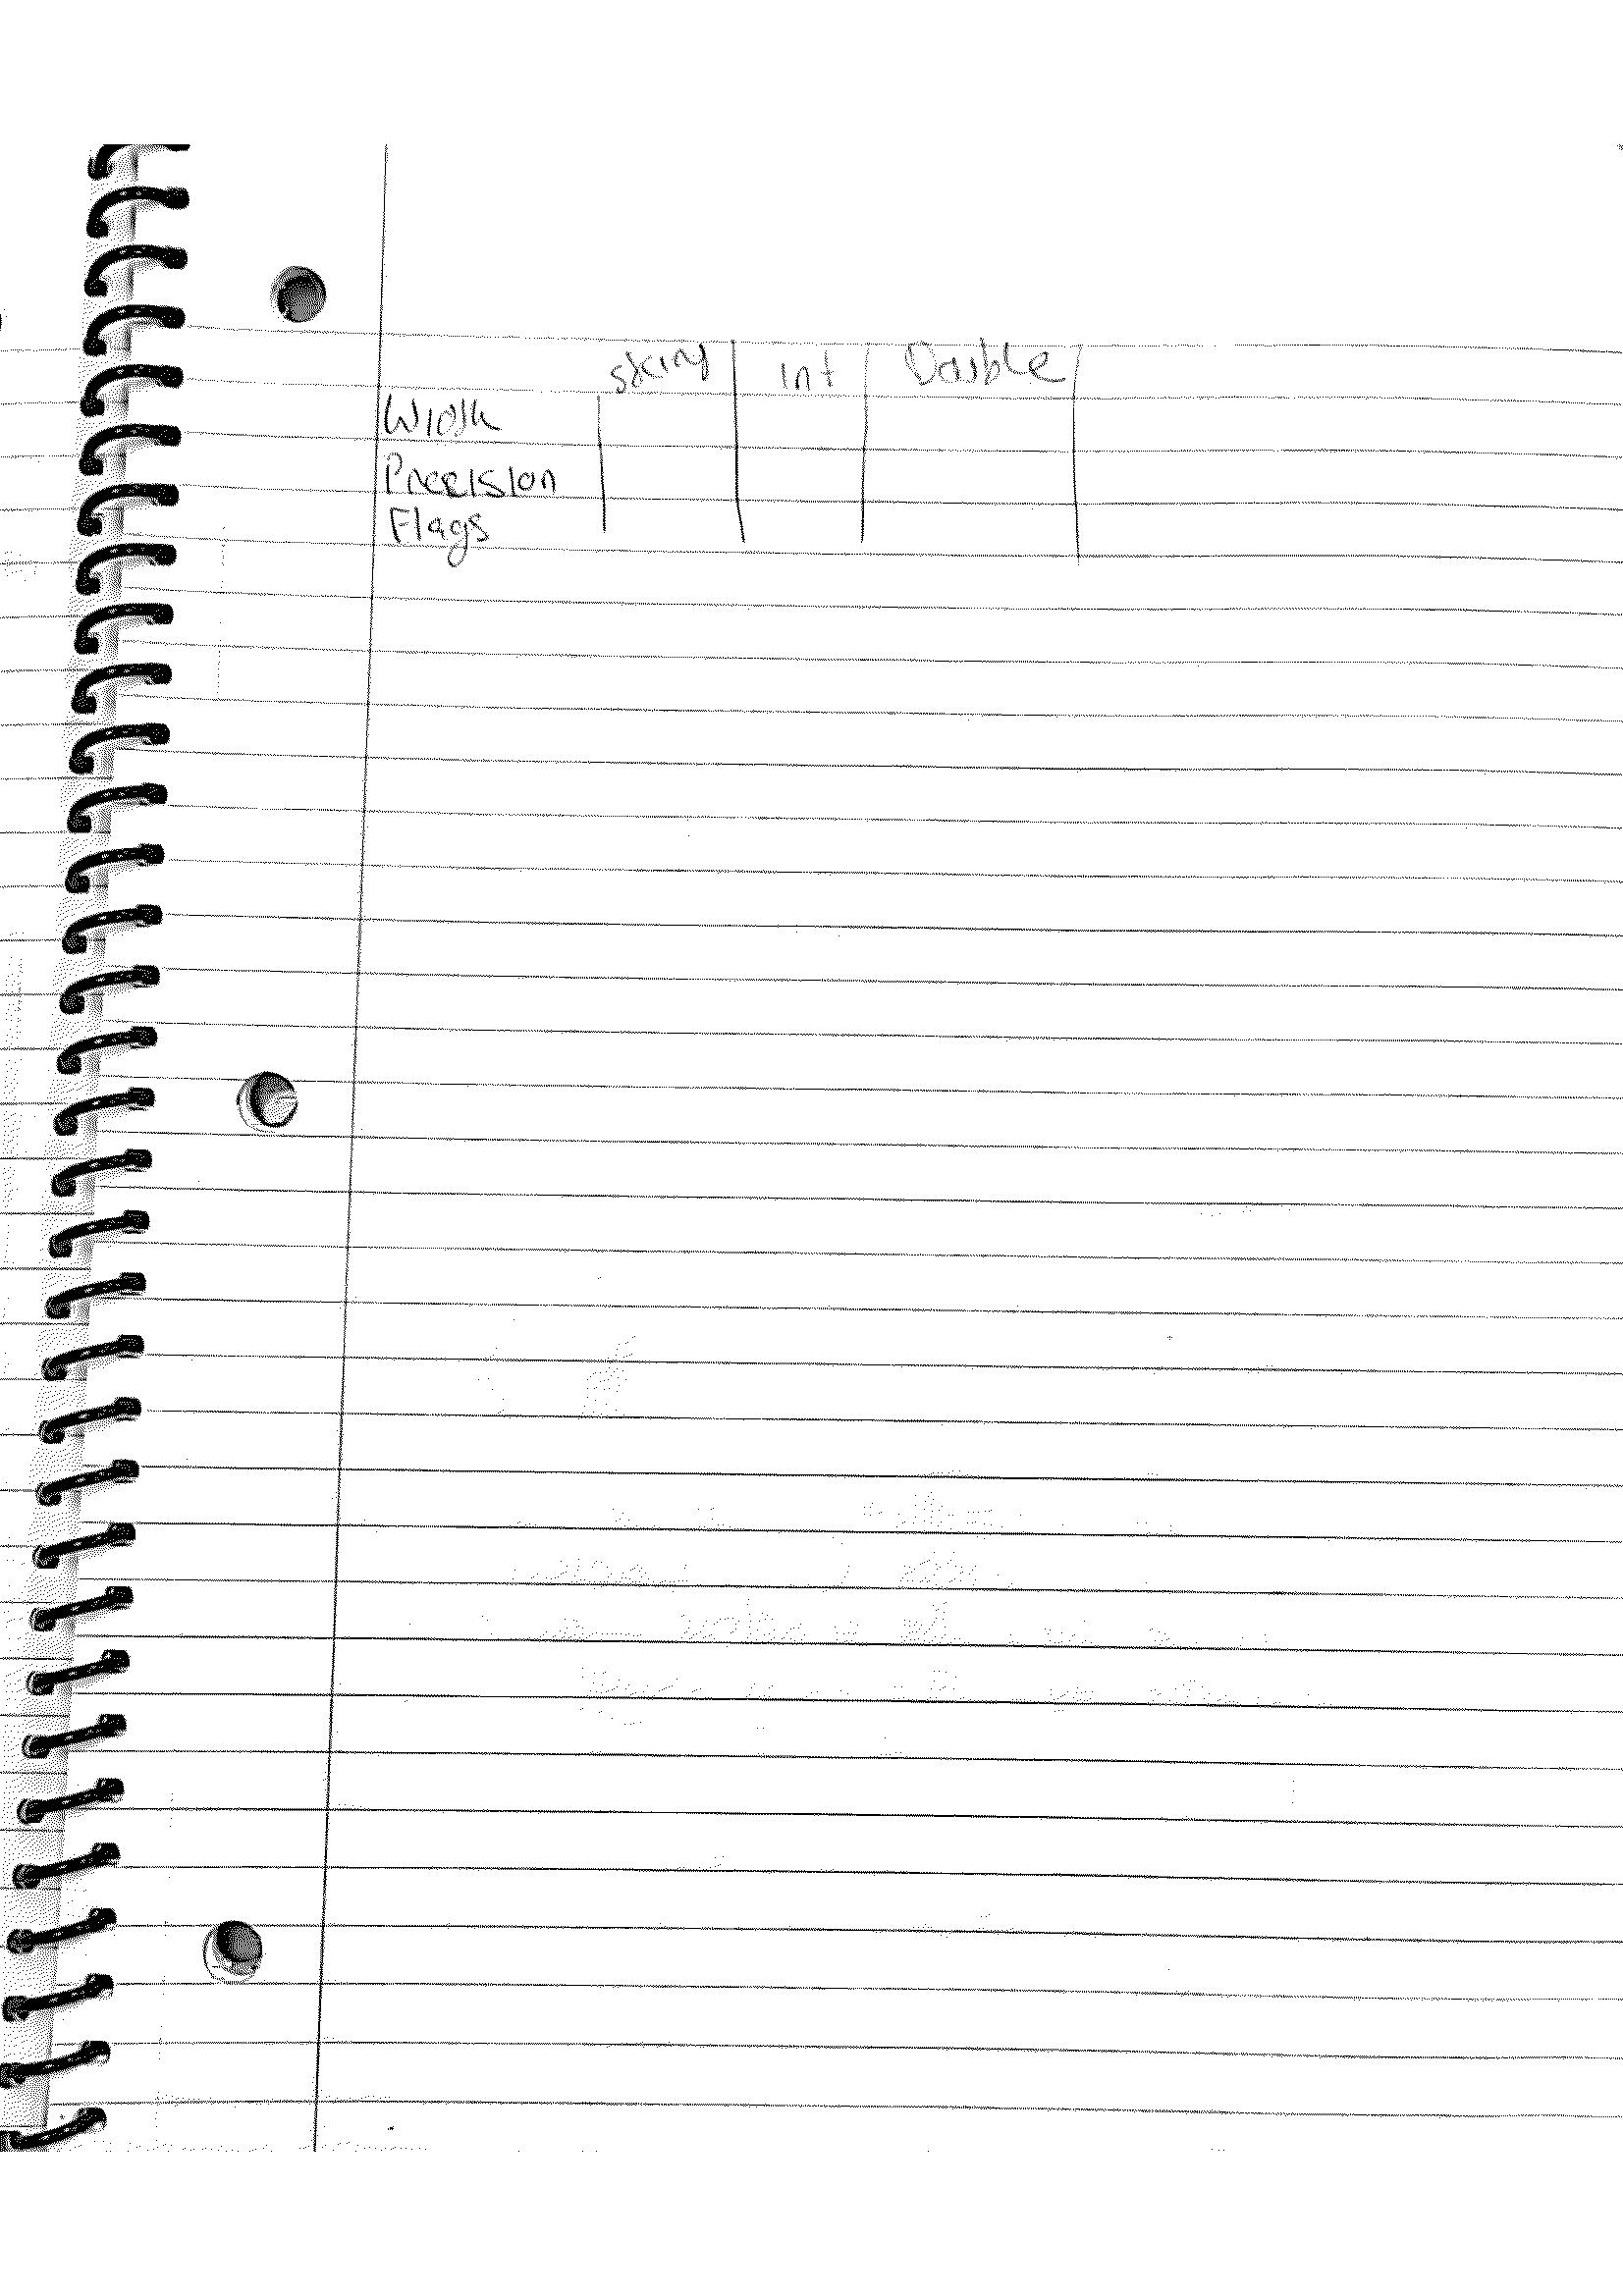 string int Double
Width
Precision
Flags